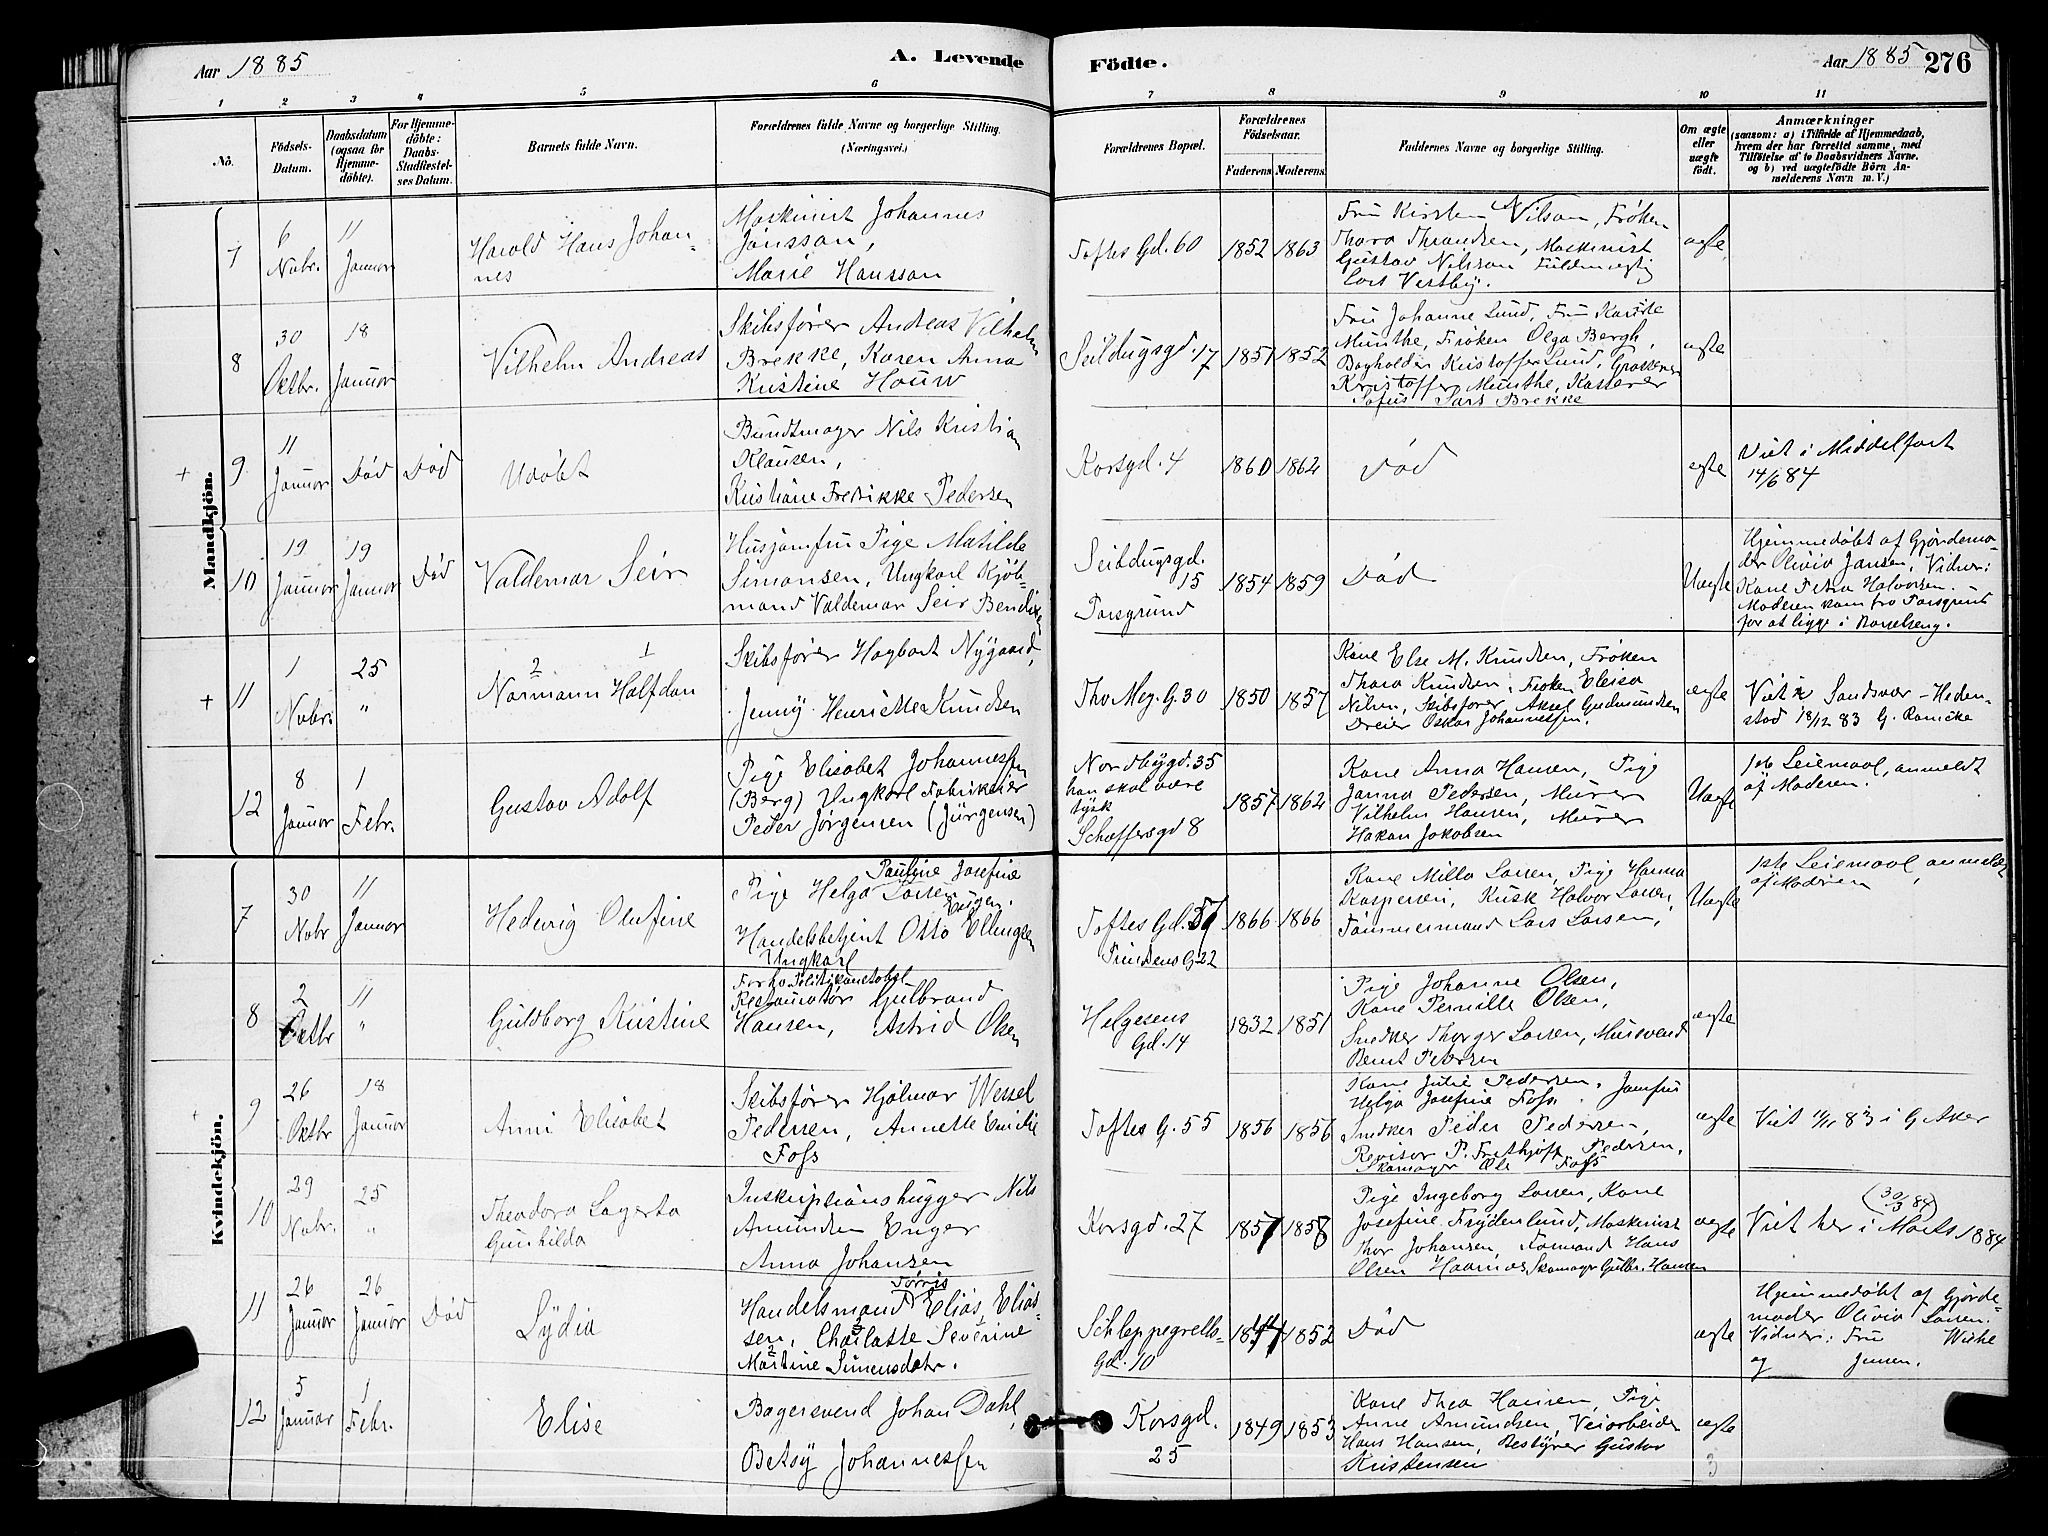 Aar 1885
A. Levende
Födte.
Aar 1885
276
1
2
3
4
5
6
7
8
9
10
11
No.
Födsels-
Datum.
Daabsdatum
(ogsaa for
Hjemme-
döbte).
For Hjemme-
döbte:
Daabs-
Stadfæstel-
ses Datum.
Barnets fulde Navn.
Forældrenes fulde Navne og borgerlige Stilling.
(Næringsvei.)
Forældrenes Bopæl.
Forældrenes
Födselsaar.
Faderens
Moderens
Faddernes Navne og borgerlige Stilling.
Om ægte
eller
uægte
født.
Anmærkninger
(saasom: a) i Tilfælde af Hjemmedaab,
hvem der har forrettet samme, med
Tilföielse af to Daabsvidners Navne.
og b) ved uægtefödte Börn An-
melderens Navn m. V.)
Mandkjön.
7
6
Nobr.
11
Januar
Harald Hans Johan-
nes
Maskinist Johannes
Jonsson,
Marie Hansson
Toftes Gd. 60
1852
1863
Fru Kirsten Nilson, Frøken
Thora Thrandsen, Maskinist
Gustav Nilsson Fuldmægtig
Carl Vestby.
ægte
8
30
Oktbr.
18
Januar
Vilhelm Andreas
Skibsfører Andreas Vilhelm
Brekke, Karen Anna
Kristine Houw
Seildugsgd. 17
1851
1852
Fru Johanne Lund, Fru Karste
Munthe, Frøken Olga Bergh,
Bogholder Kristoffer Lund, Grosserer
Kristoffer Munthe, Kasserer
Sofus Lars Brekke
ægte
+
9
11
Januar
Død
Død
Udøbt
Bundtmager Nils Kristian
Klausen,
Kristiane Fredrikke Pedersen
Korsgd. 4
1860
1862
Død
ægte
Viet i Middelfart
14/6 84
10
19
Januar
19
Januar
Død
Valdemar Seir
Husjomfru Pige Matilde
Simonsen, Ungkarl Kjøb-
mand Valdemar Seir Bendixen
Seildugsgd.
15
Porsgrund
1854
1859
Død
Uægte
Hjemmedøbt af Gjordemo-
der Olivia Jansen, Vidner:
Kone Petra Halvorsen.
Moderen kom fra Porsgrund
for at ligge i Barselseng.
+
11
1
Nobr.
25
"
2 1
Normann Halfdan
Skibsfører Hagbart Nygaard,
Jenny Henriette Knudsen
Tho. Mey. G. 30
1850
1857
Kone Else M. Knudsen, Frøken
Thora Knudsen, Frøken Eleisa
Nilsen, Skibsfører Aksel Gudmundsen
Dreier Oskar Johannessen.
ægte
Viet i Sandsvær - Heden-
stad 18/12 83 G.
12
8
Januar
1
Febr.
Gustav Adolf
Pige Elisabet Johannessen
(Berg) Ungkarl Fabrikeier
Peder Jørgensen (Jürgensen)
Nordbygd. 35
han skal være
tysk
Schoffersgd 8
1857
1862
Kone Anna Hansen, Pige
Janna Pedersen, Murer
Vilhelm Hansen, Murer
Hakon Jakobsen
Uægte
1ste Leiemaal, anmeldt
af Moderen.
Kvindekjön.
7
30
Nobr
11
Januar
Hedevig Olufine
Pauline Josefine
Pige Helga Larsen
Eugen.
Handelsbetjent Otto Ellingsen
Ungkarl
Toftes Gd. 57
G 22
1866
1866
Kone Milla Larsen, Pige Hanna
Kaspersen, Kusk Halvor Larsen,
Tømmermand Lars Larsen,
Uægte
1ste Leiemaal, anmeldt
af Moderen
8
2
Oktbr
11
"
Guldborg Kristine
Restauratør Gulbrand
Hansen, Astrid Olsen
Helgesens
Gd. 14
1832
1851
Pige Johanne Olsen,
Kone Pernille Olsen,
Snedker Thorger Larsen, Murersvend
Bernt Petersen
ægte
+
9
26
Oktbr
18
Januar
Anni Elisabet
Skibsfører Hjalmar Wessel
Pedersen, Annette Emilie
Foss
Toftes G. 55
1856
1856
Kone Julie Pedersen, Jomfru
Helga Josefine Foss.
Snedker Peder Pedersen,
Revisor P. Frithjoff Pedersen,
Skomager Ole Foss
ægte
Viet 11/11 83 i G. Aker
10
29
Nobr.
25
"
Theodora Lagerta
Gunhilda
Inskriptionshugger Nils
Amundsen Enger
Anna Johansen
Korsgd. 27
1857
1858
Pige Ingeborg Larsen, Kone
Josefine Frydenlund, Maskinist
Thor Johansen, Formand Hans
Olsen Haarnæs, Skomager Gulbr. Hansen
ægte
(30/3 84)
Viet her i Marts 1884
11
26
Januar
26
Januar
Død
Lydia
Tørris
Handelsmand Elias Elias-
sen, Charlotte Severine
Martine Simensdatr.
Schleppegrells-
Gd. 10
1852
Død
ægte
Hjemmedøbt af Gjorde-
moder Olivia Larsen.
Vidner: Fru Wiche
og Jensen.
12
5
Januar
1
Febr.
Elise
Bagersvend Johan Dahl,
Betsy Johannessen
Korsgd.
25
1849
1853
Kone Thea Hansen, Pige
Anne Amundsen, Veiarbeider
Hans Hansen, Bestyrer Gustav
Kristensen
ægte
3